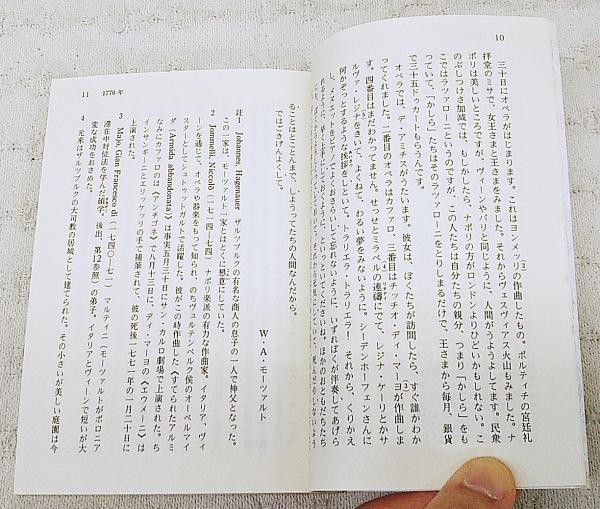 10
三十日にオペラがはじまります。これはヨンメッリの作曲したもの。ポルティチの宮廷礼
拝堂のミサで、女王さまと王さまをみました。それからヴェスヴィアス火山もみました。ナ
ポリは美しいところですが、ヴィーンやパリと同じように、人間がうようよしてます。民衆
のぶしつけさ加減では、もしかしたら、ナポリの方がロンドンよりひどいかもしれない。こ
こではラツァローニというのですが、この人たちは自分たちの親分、つまり「かしら」をも
っていて、「かしら」たちはそのラツァローニをとりしまるだけで、王さまから毎月、銀貨
で三十五ドゥカートもらうんです。
オペラでは、デ・アミチスがうたいます。彼女は、ぼくたちが訪問したら、すぐ誰かわか
ってくれました。二番目のオペラはカファロ、三番目はチッチオ・ディ・マーヨが作曲しま
す。四番目はまだわかってません。せっせとミラベルの連禱にでて、レジナ・ケーリとかサ
ルヴァ・レジナをきいて、よくねて、わるい夢をみないように。シーデンホーフェンさんに
何かぞっとするような挨拶をしといて、トラリエラ!トラリエラ!それから、くりかえ
し、メヌエットをピアノでよくおさらいして忘れないように、いずれぼくが伴奏してあげら
ることはとことんまで、しようってたちの人間なんだから。
ではごきげんよくして。
W・A・モーツァルト
註1 Johannes Hagenauer ザルツブルクの有名な商人の息子の一人で神父となった。
この一家は、モーツァルト一家とはとくに懇意にしていた。
2 Jommelli, Niccolò(一七一四―七四)ナポリ楽派の有力な作曲家。イタリア、ヴィ
ーンを通じて、オペラや器楽をもって知られ、のちヴュルテンベルク侯のオペラ・マイ
スターとしてシュトゥットガルトで活躍した。彼がこの時作曲した《すてられたアルミ
ダ Armida abbandonata》は事実五月三十日にサン・カルロ劇場で上演された。ち
なみにカファロのは《アンチゴネ》で八月十三日に、ディ・マーヨの《エウメーニ》は
インサングイーニとエリッケッリの手で補筆されて、彼の死後一七七一年の一月二十日に
上演された。
3 Majo, Gian Francesco di(一七四〇―七一)マルティーニ(モーツァルトがボロニア
滞在中対位法を学んだ碩学。後出、第12参照)の弟子。イタリアとヴィーンで短いが大
変な成功をおさめた。
4 元来はザルツブルクの大司教の居城として建てられた。その小さいが美しい庭園は今
11 1770年